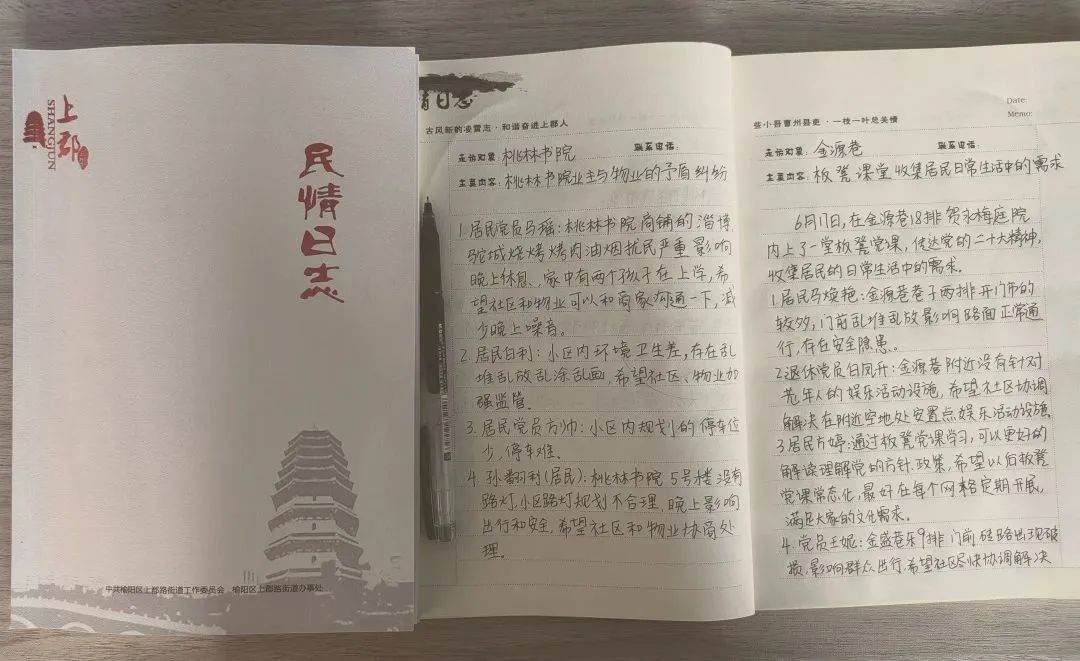 上郡
SHANGJUN
民情日志
中共榆阳区上郡路街道工作委员会 榆阳区上郡路街道办事处
情日志
古风新韵凌霄志·和谐奋进上郡人
走访对象：桃林书院
联系电话：
主要内容：桃林书院业主与物业的矛盾纠纷
1.居民党员马瑶：桃林书院商铺的淄博
驼城烧烤烤肉油烟扰民严重影响
晚上休息、家中有两个孩子在上学,希
望社区和物业可以和商家沟通一下,减
少晚上噪音。
2.居民白利：小区内环境卫生差,存在乱
堆乱放乱涂乱画,希望社区、物业加
强监管。
3.居民党员方帅：小区内规划的停车位
少,停车难。
4.孙翻利(居民)：桃林书院5号楼没有
路灯,小区路灯规划不合理,晚上影响
出行和安全,希望社区和物业协商处
理。
些小吾曹州县吏·一枝一叶总关情
Date:
Memo:
走访对象：金源巷
联系电话：
主要内容：板凳课堂收集居民日常生活中的需求
6月17日,在金源巷18排贺永梅庭院
内上了一堂板凳党课,传达党的二十大精神,
收集居民的日常生活中的需求。
1.居民马焕艳：金源巷巷子两排开门市的
较多,门前乱堆乱放影响路面正常通
行,存在安全隐患。
2.退休党员白凤开：金源巷附近没有针对
老年人的娱乐活动设施,希望社区协调
解决在附近空地处安置点娱乐活动设施
3.居民方婷：通过板凳党课学习,可以更好的
解读理解党的方针、政策,希望以后板凳
党课常态化,最好在每个网格定期开展,
满足大家的文化需求。
4.党员王妮：金盛巷东9排门前砖路出现破
损,影响群众出行,希望社区尽快协调解决